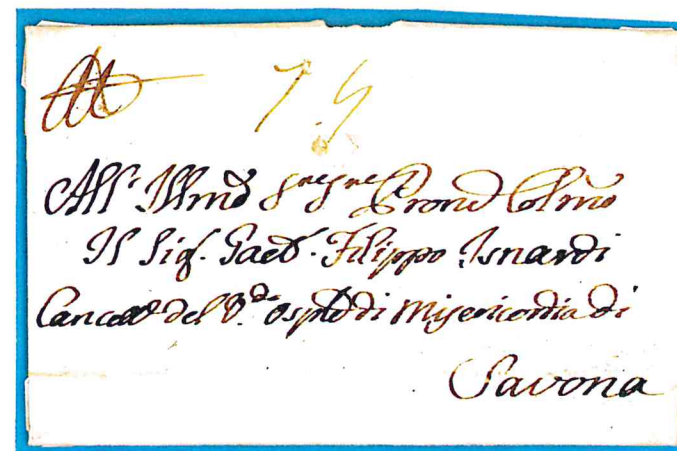 All' Illmo Sre Sre Prone Colmo
Il Sig. Gaet. Filippo Isnardi
Cancel. del V.do Osple di Misericordia di
Savona